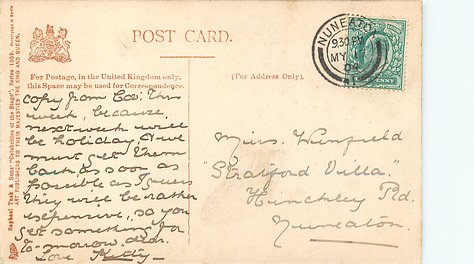 POST CARD.
For Postage, in the United Kingdom only,
this Space may be used for Correspondence.
(For Address Only).
Raphael Tuck & Sons' "Celebrities of the Stage", Series
ART PUBLISHERS TO THEIR MAJESTIES THE KING AND QUEEN.
NUNEATON
9.30 PM
MY
copy from Cov: this
week, because
next week will
be holiday, & we
must get them
back as soon as
possible as I guess
they will be rather
expensive, so you
get something for
To-morrow, dear.
Love Kitty
Miss Winfield
"Stratford Villa"
Hinckley Rd.
Nuneaton.